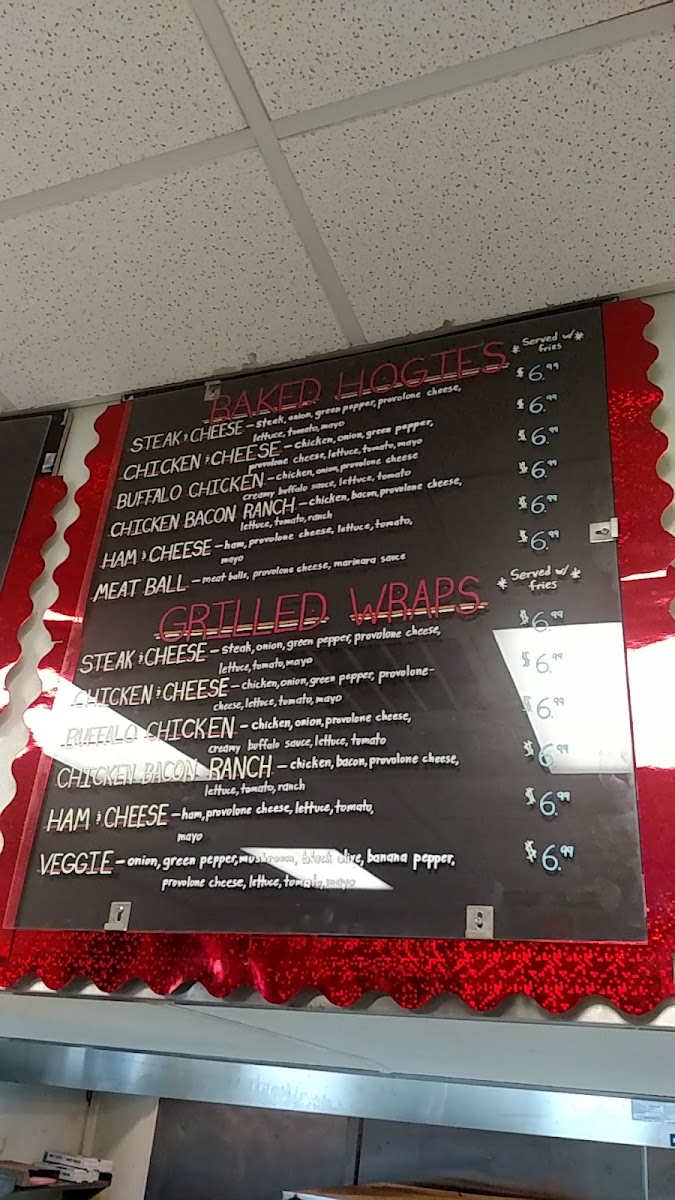 BAKED HOGIES
* Served w/ *
fries
STEAK & CHEESE – steak, onion, green pepper, provolone cheese, $6.99
lettuce, tomato, mayo
CHICKEN & CHEESE – chicken, onion, green pepper, $6.99
provolone cheese, lettuce, tomato, mayo
BUFFALO CHICKEN – chicken, onion, provolone cheese $6.99
creamy buffalo sauce, lettuce, tomato
CHICKEN BACON RANCH – chicken, bacon, provolone cheese, $6.99
lettuce, tomato, ranch
HAM & CHEESE – ham, provolone cheese, lettuce, tomato, $6.99
mayo
MEAT BALL – meat balls, provolone cheese, marinara sauce $6.99
GRILLED WRAPS
* Served w/ *
fries
STEAK & CHEESE – steak, onion, green pepper, provolone cheese, $6.99
lettuce, tomato, mayo
CHICKEN & CHEESE – chicken, onion, green pepper, provolone- $6.99
cheese, lettuce, tomato, mayo
BUFFALO CHICKEN – chicken, onion, provolone cheese, $6.99
creamy buffalo sauce, lettuce, tomato
CHICKEN BACON RANCH – chicken, bacon, provolone cheese, $6.99
lettuce, tomato, ranch
HAM & CHEESE – ham, provolone cheese, lettuce, tomato, $6.99
mayo
VEGGIE – onion, green pepper, mushroom, black olive, banana pepper, $6.99
provolone cheese, lettuce, tomato, mayo